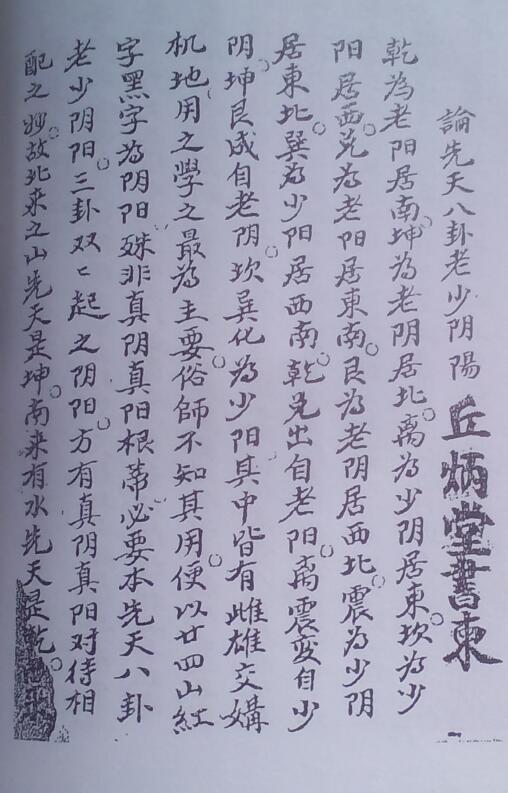 論先天八卦老少阴陽
丘炳堂書柬
乾為老阳居南坤為老阴居北离為少阴居東坎為少
阳居西兑為老阳居東南艮為老阴居西北震為少阴
居東北巽為少阳居西南乾兑出自老阳离震变自少
阴坤艮成自老阴坎巽化為少阳其中皆有雌雄交媾
机地用之學之最為主要俗師不知其用便以廿四山紅
字黑字為阴阳殊非真阴真阳根蒂必要本先天八卦
老少阴阳三卦双々起之阴阳方有真阴真阳对待相
配之妙故北来之山先天是坤南来有水先天是乾